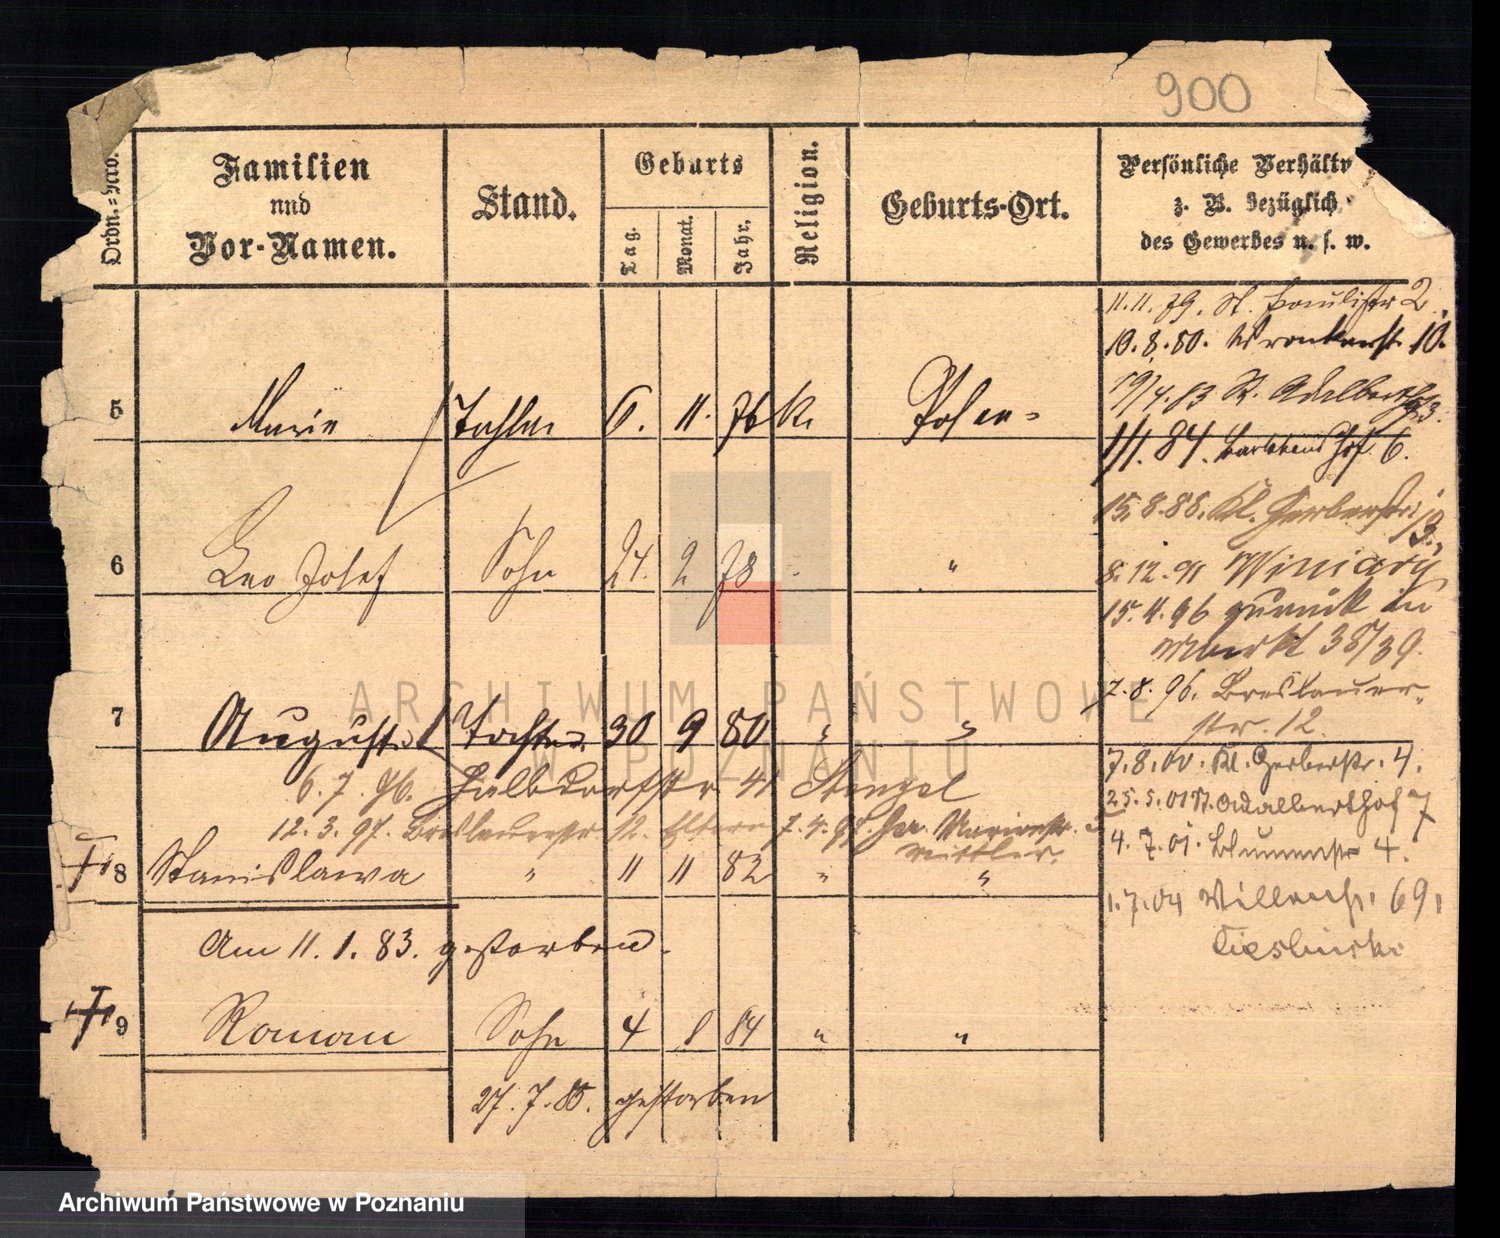 900
Ordn.-Nro.
Familien
und
Vor-Namen.
Stand.
Geburts
Tag.
Monat.
Jahr.
Religion.
Geburts-Ort.
Persönliche Verhält
z. B. bezüglich
des Gewerbes u. s. w.
11.11.79. St. Paulistr 2
10.8.80. Wronkerst. 10.
19/4.83 St. Adalbert 23.
5 Marie Tochter 6. 11. 76 K. Posen
1/1. 84. Hof 6.
15.8.88. Kl. Gerberstr. 13.
6 Leo Josef Sohn 24. 2 78 "
8.12.91 Winiary
15.4.96 zurück
Markt 38/39.
7.8.96. Breslauer-
str. 12.
7 August Tochter 30 9 80 " "
6. 7. 96. Halbdorfstr 41 Stenzel
12. 3. 97. Breslauerstr 12. Eltern 7. 4. 98.
7.8.00. Kl. Gerberstr. 4.
25.5.01 St. Adalberthof 7
4. 7. 01. Blumenstr 4.
8 Stanislawa " 11 11 82 " "
1.7.04 69,
Am 11. 1. 83. gestorben.
9 Roman Sohn 4 8 84 " "
27. 7. 85. gestorben
ARCHIWUM PAŃSTWOWE
W POZNANIU
Archiwum Państwowe w Poznaniu